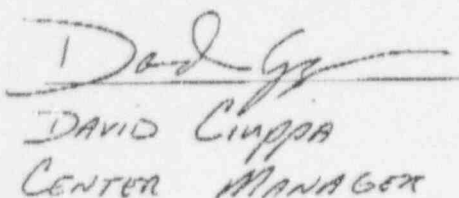 DAVID Ciuppa
CENTER MANAGER